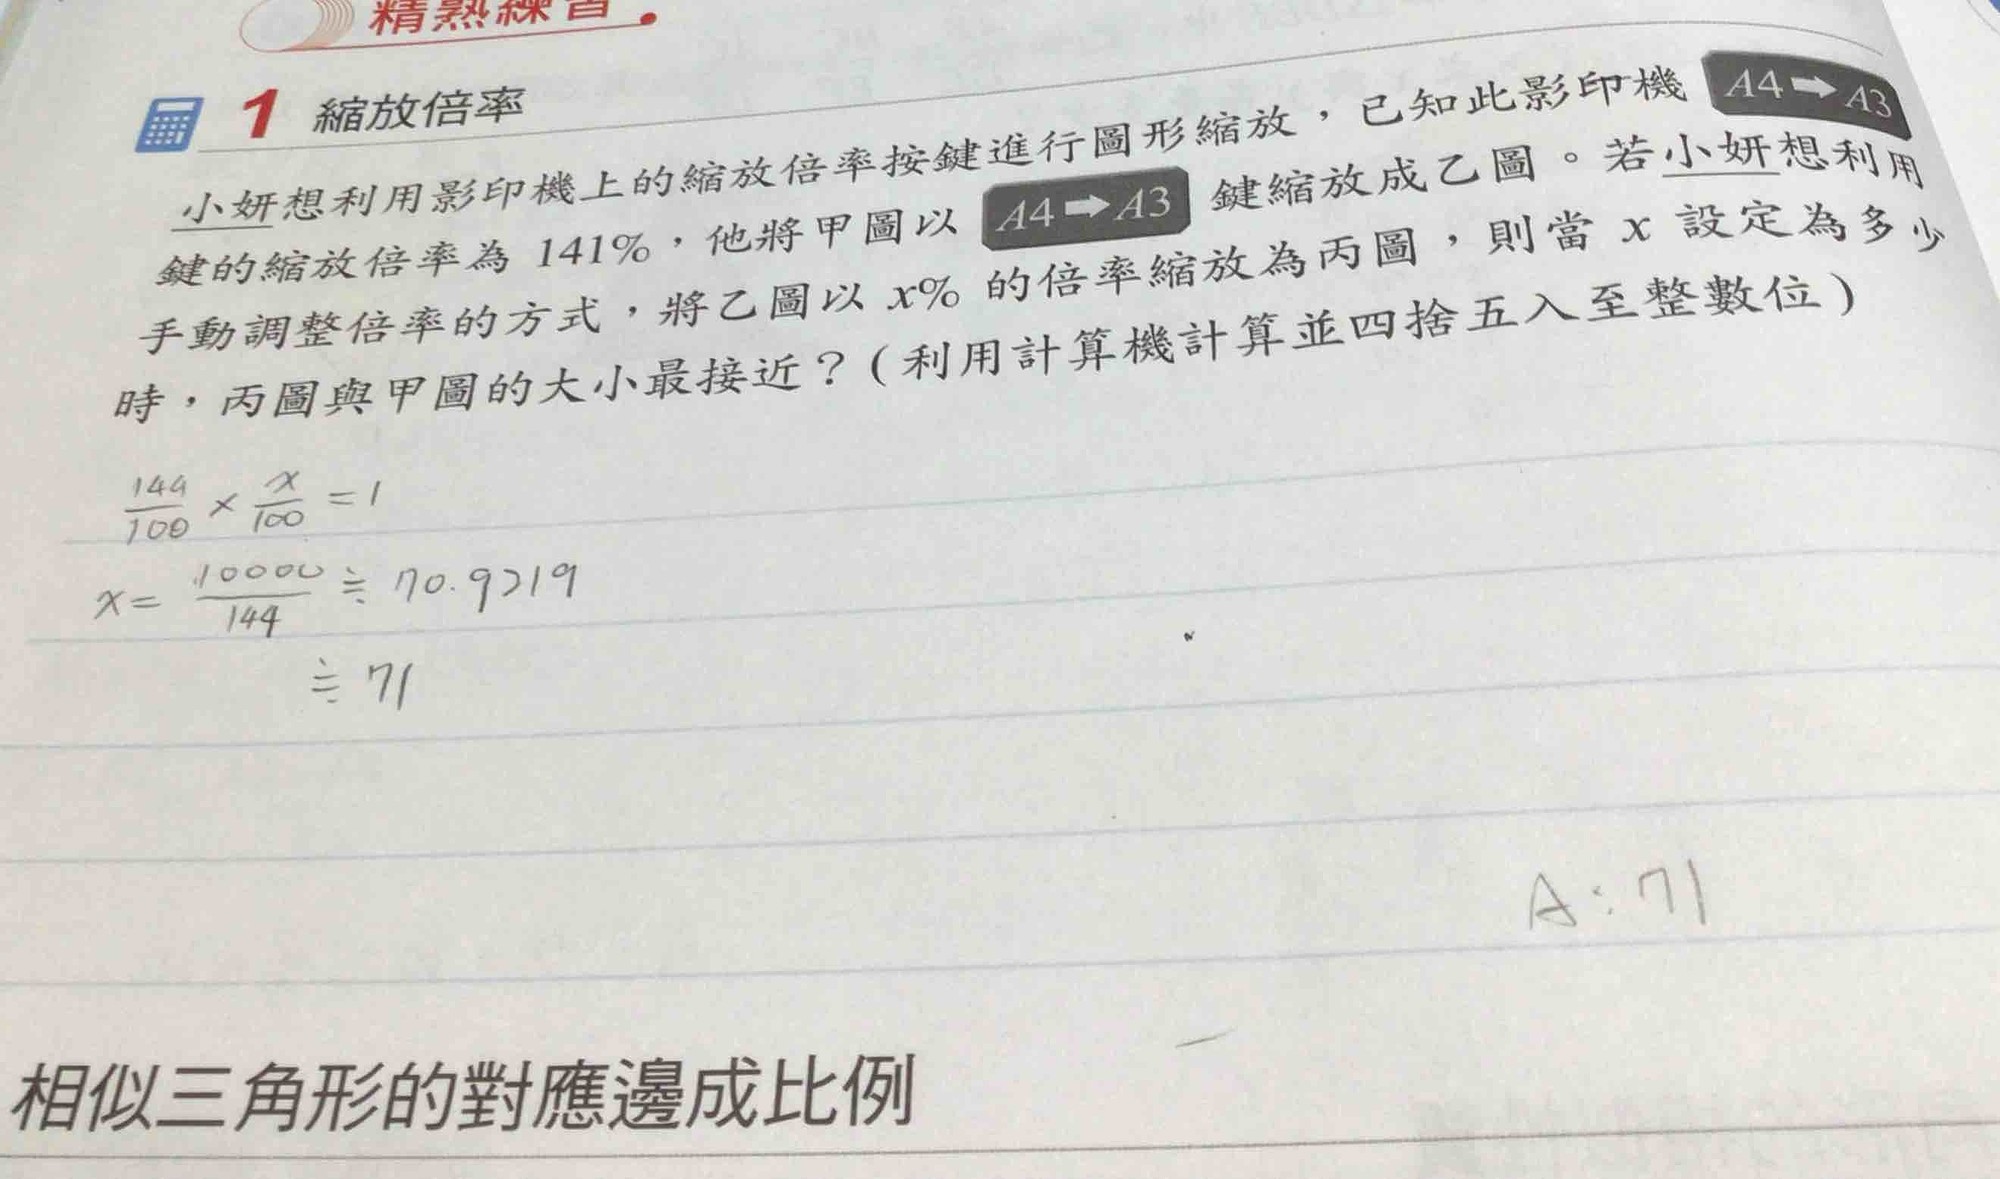 精熟練習
1 縮放倍率
小妍想利用影印機上的縮放倍率按鍵進行圖形縮放，已知此影印機 A4➡A3
鍵的縮放倍率為 141%，他將甲圖以 A4➡A3 鍵縮放成乙圖。若小妍想利用
手動調整倍率的方式，將乙圖以 x% 的倍率縮放為丙圖，則當 x 設定為多少
時，丙圖與甲圖的大小最接近？(利用計算機計算並四捨五入至整數位)
144/100 × x/100 = 1
x = 10000/144 ≒ 70.9219
≒ 71
A：71
相似三角形的對應邊成比例